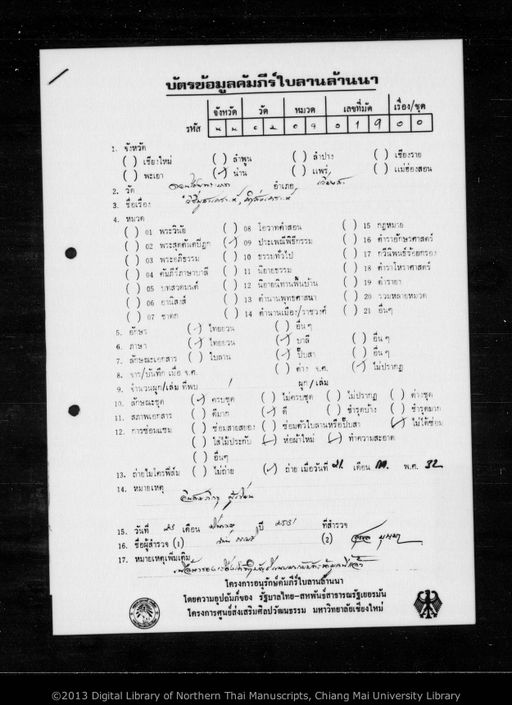 บัตรข้อมูลคัมภีร์ใบลานล้านนา
จังหวัด วัด หมวด เลขที่มัด เรื่อง/ชุด
รหัส นน 02 09 019 00
1. จังหวัด
( ) เชียงใหม่ ( ) ลำพูน ( ) ลำปาง ( ) เชียงราย
( ) พะเยา (✓) น่าน ( ) แพร่ ( ) แม่ฮ่องสอน
2. วัด อำเภอ
3. ชื่อเรื่อง
4. หมวด
( ) 01 พระวินัย ( ) 08 โอวาทคำสอน ( ) 15 กฎหมาย
( ) 02 พระสุตตันตปิฎก (✓) 09 ประเพณีพิธีกรรม ( ) 16 ตำรายักษาศาสตร์
( ) 03 พระอภิธรรม ( ) 10 ธรรมทั่วไป ( ) 17 กวีนิพนธ์ร้อยกรอง
( ) 04 คัมภีร์ภาษาบาลี ( ) 11 นิยายธรรม ( ) 18 ตำราโหราศาสตร์
( ) 05 บทสวดมนต์ ( ) 12 นิยายนิทานพื้นบ้าน ( ) 19 ตำรายา
( ) 06 อานิสงส์ ( ) 13 ตำนานพุทธศาสนา ( ) 20 รวมหลายหมวด
( ) 07 ชาดก ( ) 14 ตำนานเมือง/ราชวงศ์ ( ) 21 อื่นๆ
5. อักษร (✓) ไทยยวน ( ) อื่นๆ
6. ภาษา (✓) ไทยยวน (✓) บาลี ( ) อื่นๆ
7. ลักษณะเอกสาร ( ) ใบลาน (✓) พับสา ( ) อื่นๆ
8. จาร/บันทึก เมื่อ จ.ศ. ( ) ต่าง จ.ศ. (✓) ไม่ปรากฏ
9. จำนวนผูก/เล่ม ที่พบ 1 ผูก/เล่ม
10. ลักษณะชุด (✓) ครบชุด ( ) ไม่ครบชุด ( ) ไม่ปรากฏ ( ) ต่างชุด
11. สภาพเอกสาร ( ) ดีมาก (✓) ดี ( ) ชำรุดบ้าง ( ) ชำรุดมาก
12. การซ่อมแซม ( ) ซ่อมสายสยอง ( ) ซ่อมตัวใบลานหรือปั๊บสา (✓) ไม่ได้ซ่อม
( ) ใส่ไม้ประกับ (✓) ห่อผ้าใหม่ (✓) ทำความสะอาด
( ) อื่นๆ
13. ถ่ายไมโครฟิล์ม ( ) ไม่ถ่าย (✓) ถ่าย เมื่อวันที่ 21 เดือน พ.ศ. 32
14. หมายเหตุ
15. วันที่ 23 เดือน ปี 2531 ที่สำรวจ
16. ชื่อผู้สำรวจ (1) (2)
17. หมายเหตุเพิ่มเติม
โครงการอนุรักษ์คัมภีร์ใบลานล้านนา
โดยความอุปถัมภ์ของ รัฐบาลไทย-สหพันธ์สาธารณรัฐเยอรมัน
โครงการศูนย์ส่งเสริมศิลปวัฒนธรรม มหาวิทยาลัยเชียงใหม่
©2013 Digital Library of Northern Thai Manuscripts, Chiang Mai University Library